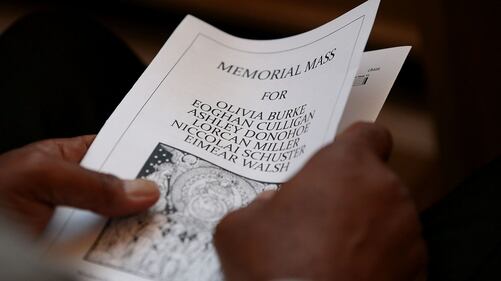 MEMORIAL MASS
FOR
OLIVIA BURKE
EOGHAN CULLIGAN
ASHLEY DONOHOE
LORCAN MILLER
NICCOLAI SCHUSTER
EIMEAR WALSH